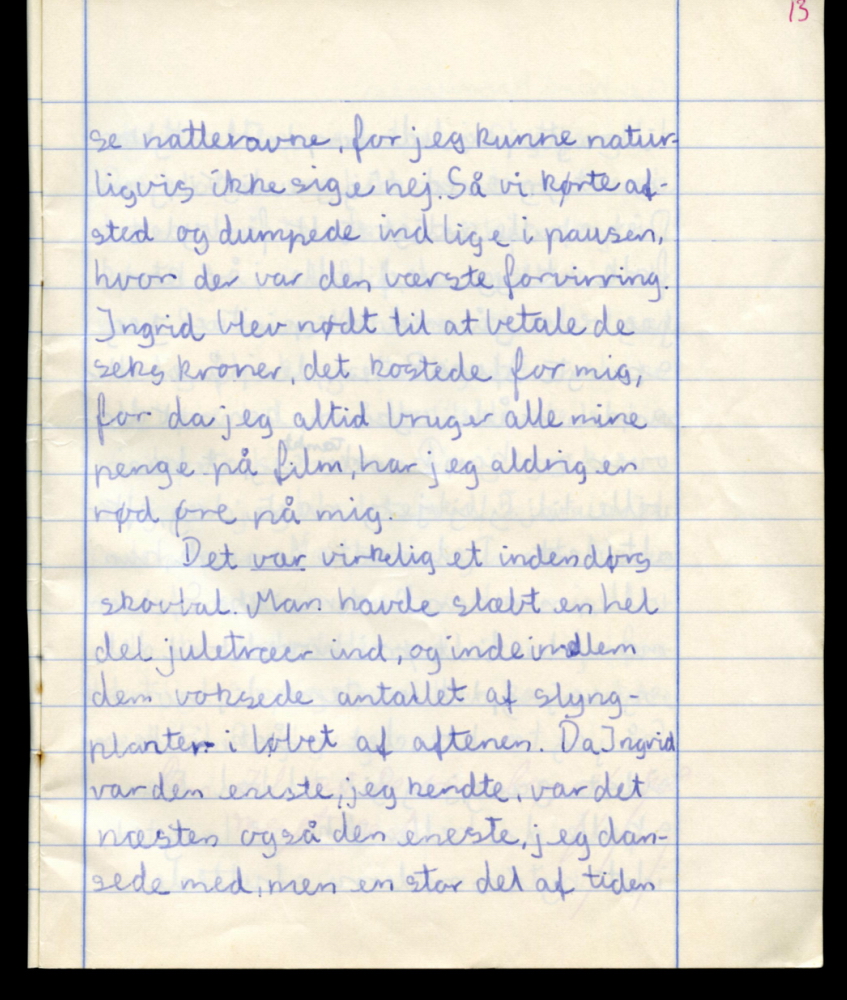 13
se natteravne, for jeg kunne natur-
ligvis ikke sige nej. Så vi kørte af-
sted og dumpede ind lige i pausen,
hvor der var den værste forvirring.
Ingrid blev nødt til at betale de
seks kroner, det kostede for mig,
for da jeg altid bruger alle mine
penge på film, har jeg aldrig en
rød øre på mig.
Det var virkelig et indendørs
skovbal. Man havde slæbt en hel
del juletræer ind, og inde imellem
dem voksede antallet af slyng-
planter i løbet af aftenen. Da Ingrid
var den eneste, jeg kendte, var det
næsten også den eneste, jeg dan-
sede med, men en stor del af tiden